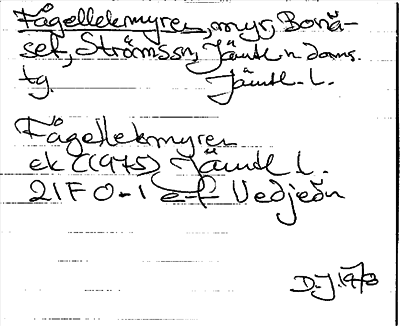 Fågellekmyren, myr, Bonä-
set, Strömssn, Jämtl. n. doms.
tg. Jämtl. l.
Fågellekmyren
ek C(1975) Jämtl l.
21F 0-1 e-f Vedjeön
D.J. 1978